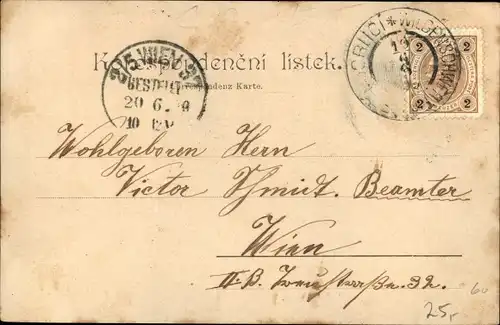 Korrespondenční lístek.
Correspondenz Karte.
2/5 WIEN 57
BESTELLT
20 6
WILDENSCHWERT
2 2
2 2
Wohlgeboren Hern
Victor Schmidt. Beamter
Wien
II. B. 32.
25,-